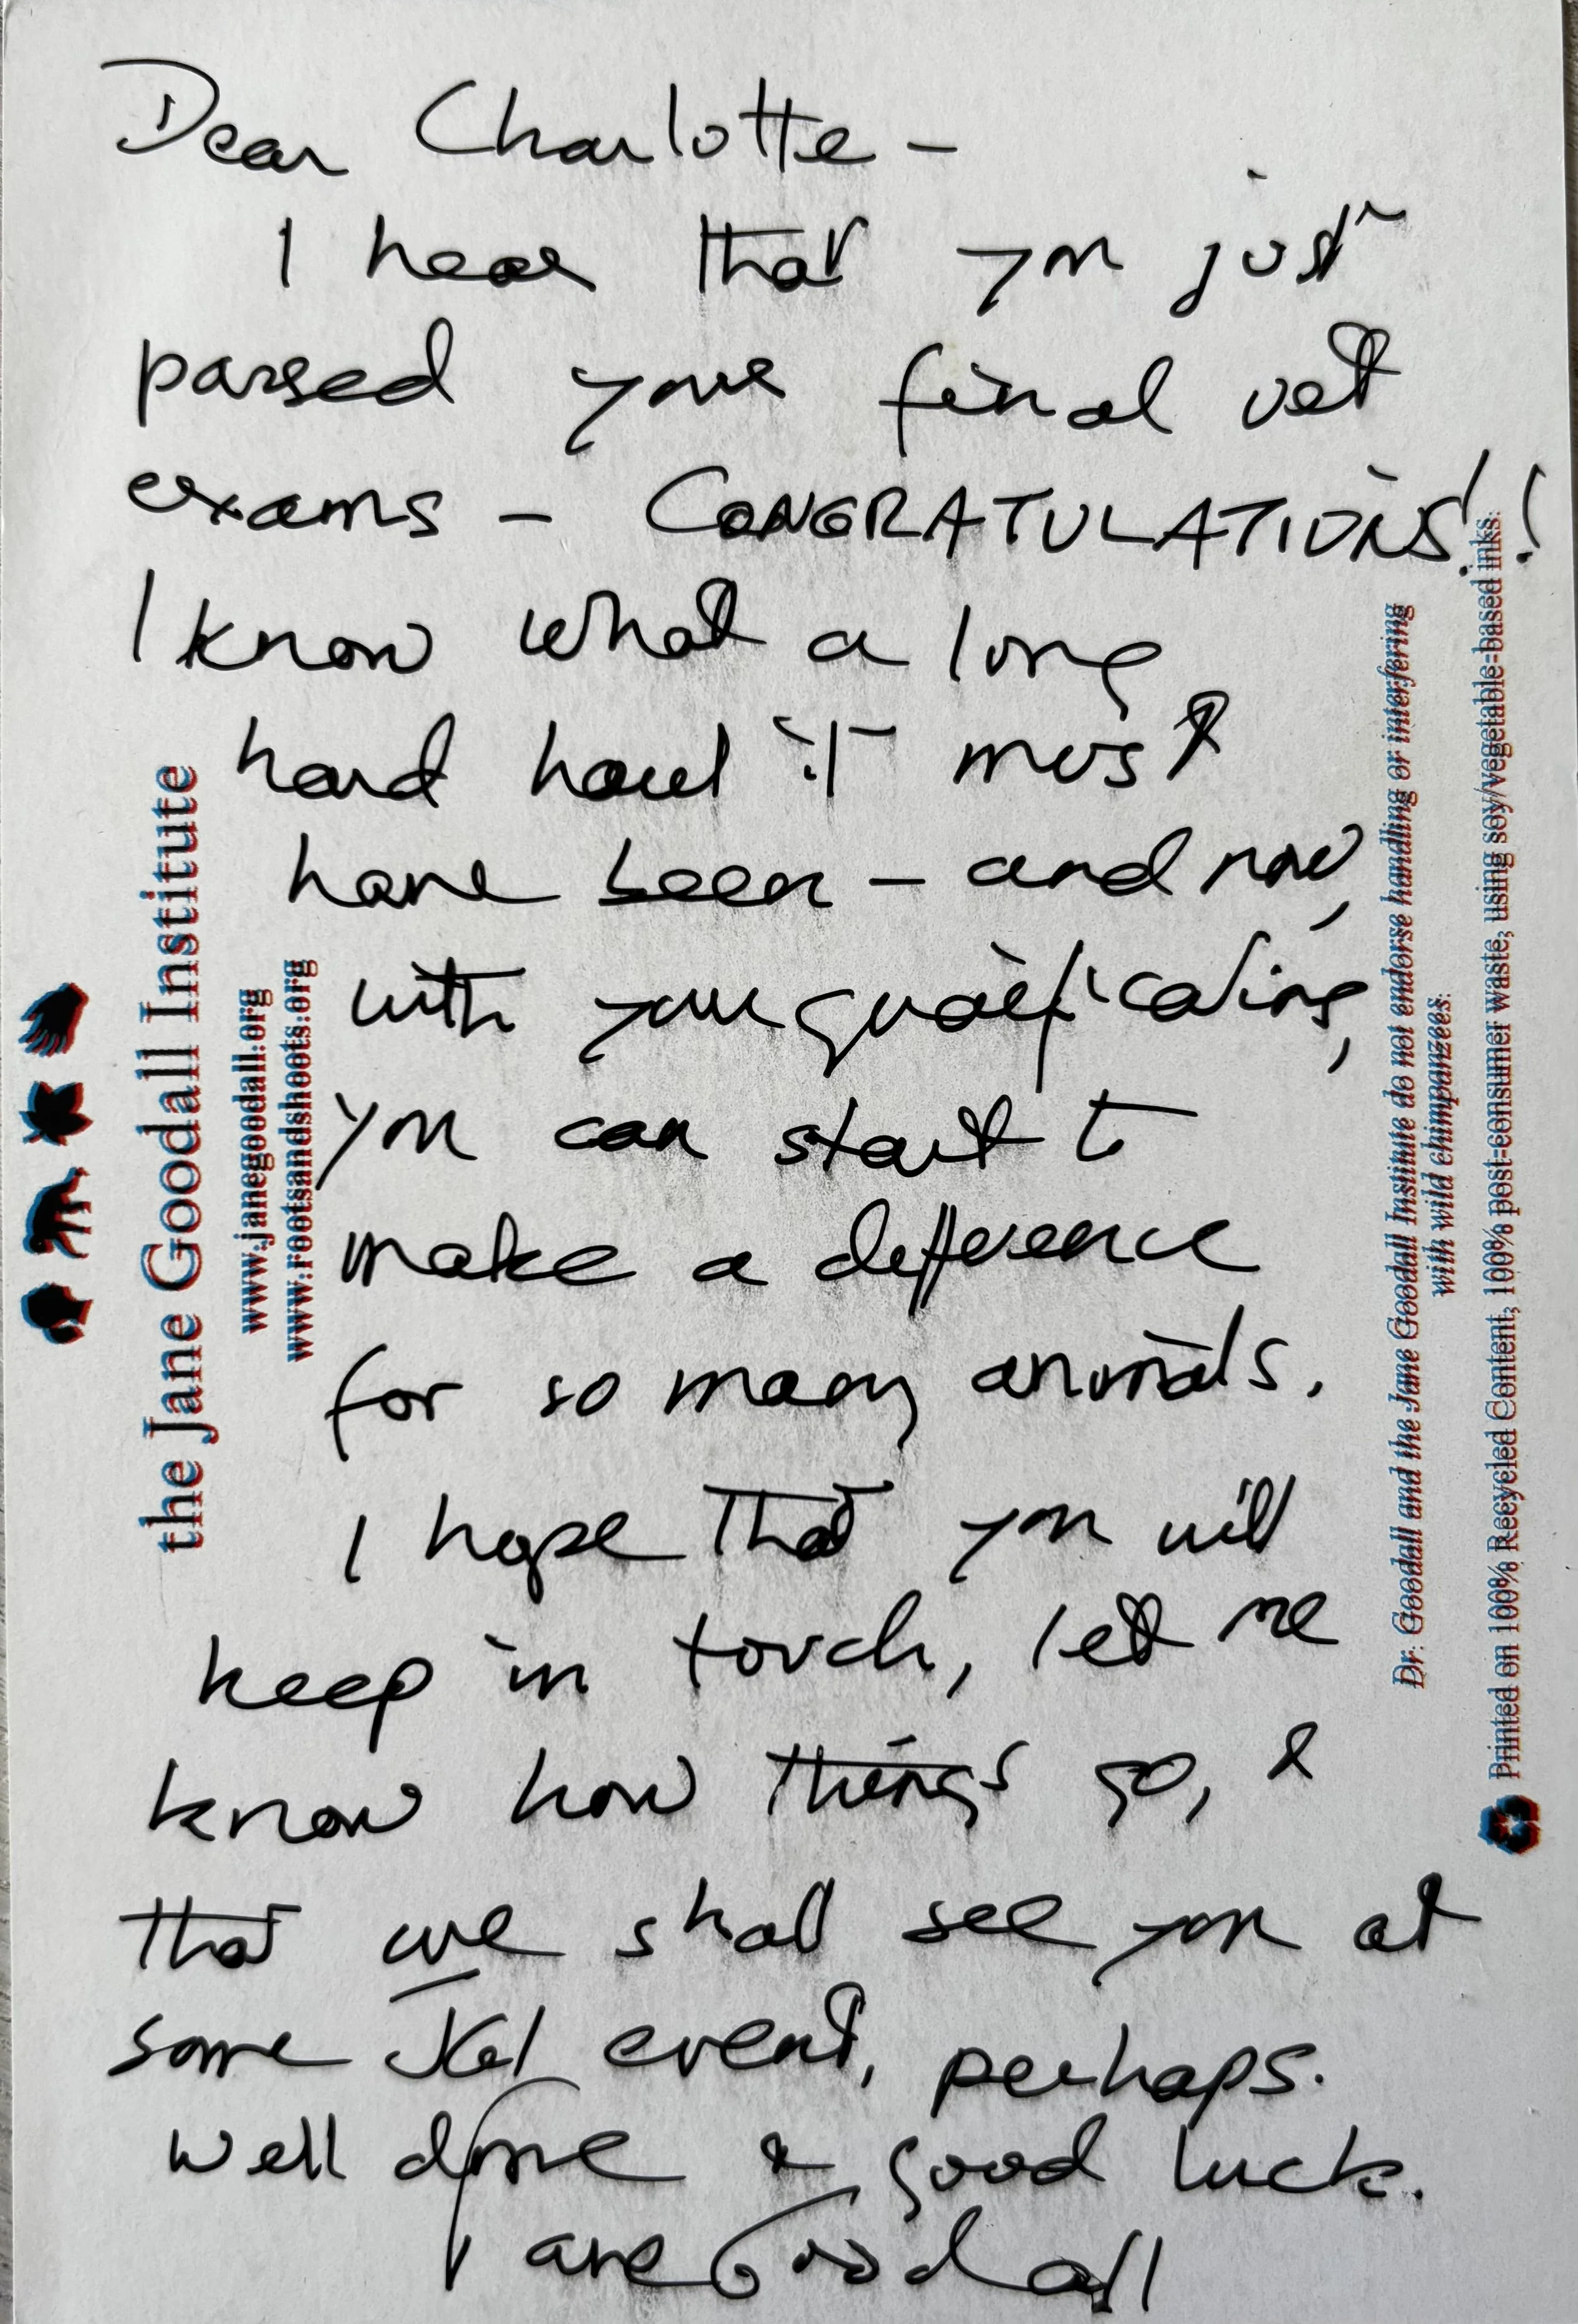 Dear Charlotte –
I hear that you just
passed your final vet
exams – CONGRATULATIONS!!
I know what a long
hard haul it must
have been – and now,
with your qualifications,
you can start to
make a difference
for so many animals.
I hope that you will
keep in touch, let me
know how things go, &
that we shall see you at
some JGI event, perhaps.
Well done & good luck.
Jane Goodall
the Jane Goodall Institute
www.janegoodall.org
www.rootsandshoots.org
Dr. Goodall and the Jane Goodall Institute do not endorse handling or interfering
with wild chimpanzees.
Printed on 100% Recycled Content, 100% post-consumer waste, using soy/vegetable-based inks.